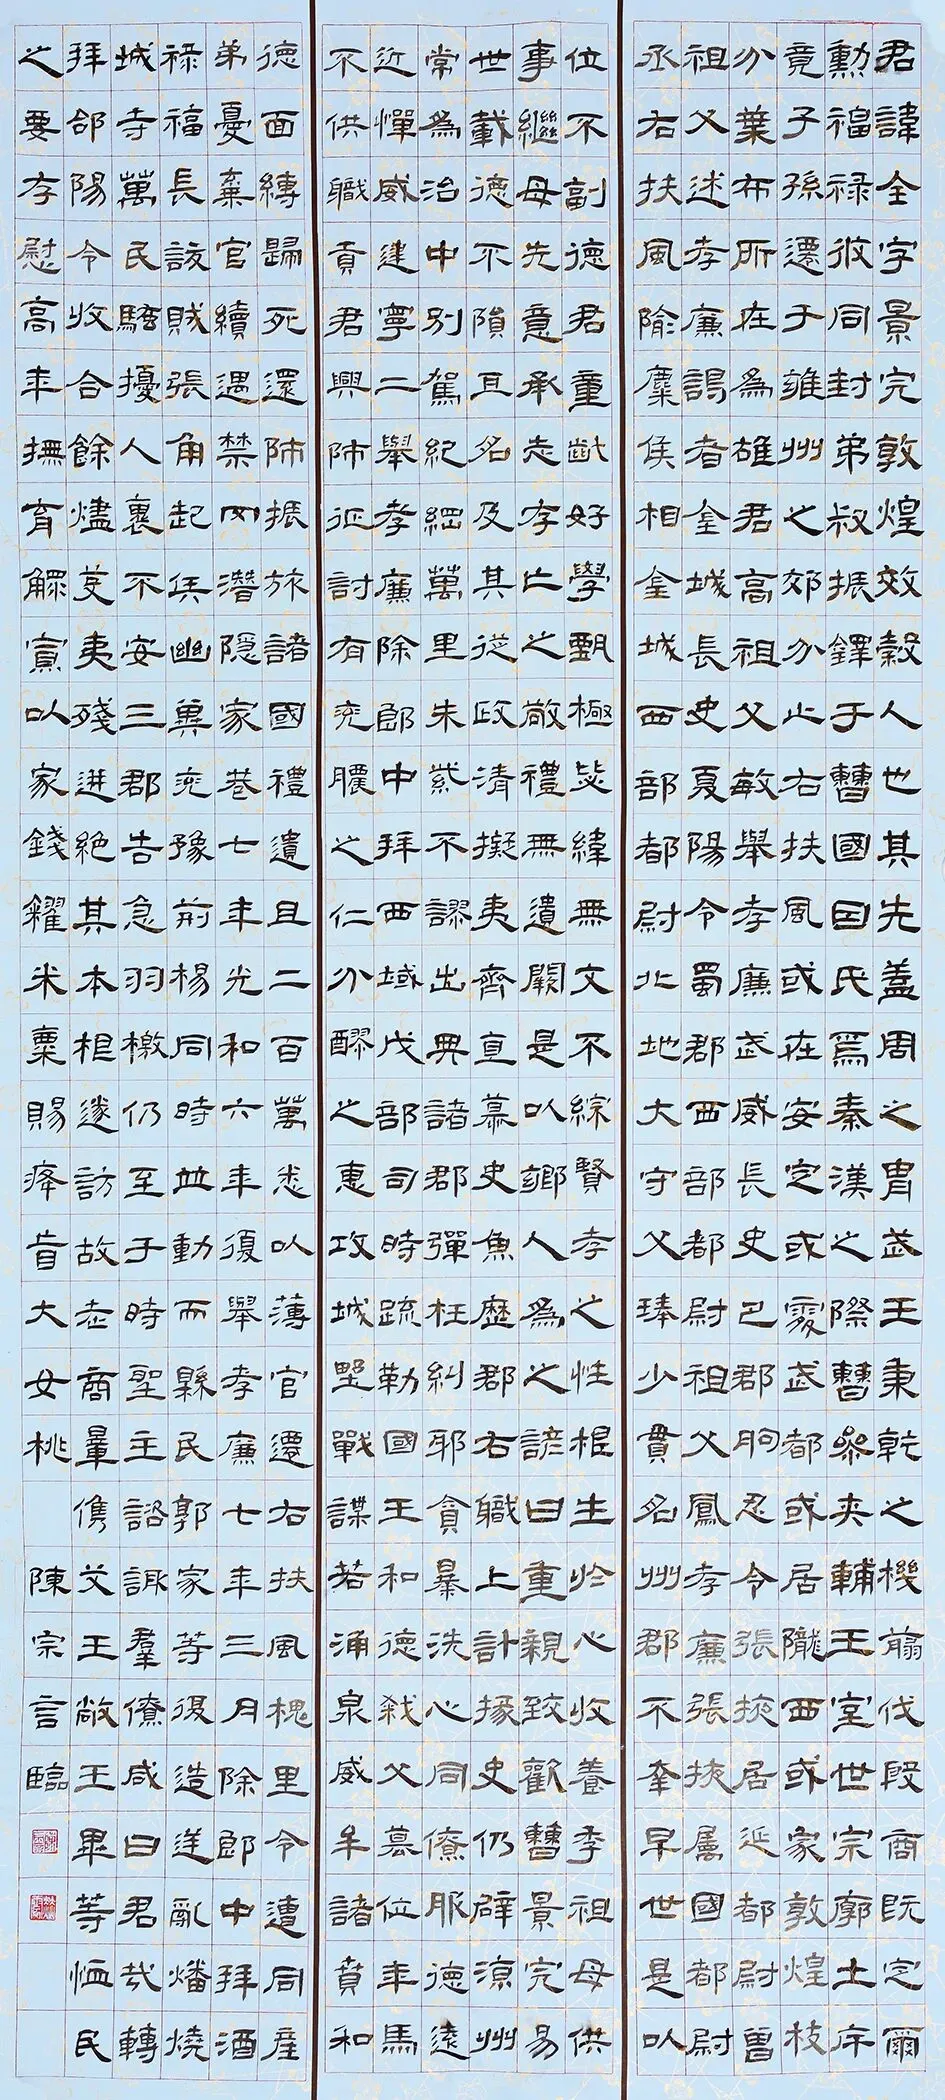 君諱全字景完敦煌效穀人也其先蓋周之胄武王秉乾之機翦伐殷商既定爾
勳福祿攸同封弟叔振鐸于曹國因氏焉秦漢之際曹參夾輔王室世宗廓土斥
竟子孫遷于雍州之郊分止右扶風或在安定或處武都或居隴西或家敦煌枝
分葉布所在為雄君高祖父敏舉孝廉武威長史巴郡朐忍令張掖居延都尉曾
祖父述孝廉謁者金城長史夏陽令蜀郡西部都尉祖父鳳孝廉張掖屬國都尉
丞右扶風隃麋侯相金城西部都尉北地大守父琫少貫名州郡不幸早世是以
位不副德君童齔好學甄極毖緯無文不綜賢孝之性根生於心收養季祖母供
事繼母先意承志存亡之敬禮無遺闕是以鄉人為之諺曰重親致歡曹景完易
世載德不隕其名及其從政清擬夷齊直慕史魚歷郡右職上計掾史仍辟涼州
常為治中別駕紀綱萬里朱紫不謬出典諸郡彈枉糾邪貪暴洗心同僚服德遠
近憚威建寧二舉孝廉除郎中拜西域戊部司時疏勒國王和德弒父篡位年馬
不供職貢君興師征討有兗膿之仁分醪之惠攻城野戰謀若涌泉威牟諸賁和
德面縛歸死還師振旅諸國禮遺且二百萬悉以薄官遷右扶風槐里令遭同產
弟憂棄官續遇禁罔潛隱家巷七年光和六年復舉孝廉七年三月除郎中拜酒
祿福長訞賊張角起兵幽冀兗豫荊楊同時並動而縣民郭家等復造逆亂燔燒
城寺萬民騷擾人裏不安三郡告急羽檄仍至于時聖主諮諏羣僚咸曰君哉轉
拜郃陽令收合餘燼芟夷殘迸絕其本根遂訪故老商量儁艾王敞王畢等恤民
之要存慰高年撫育鰥寡以家錢糴米粟賜癃盲大女桃
陳宗言臨